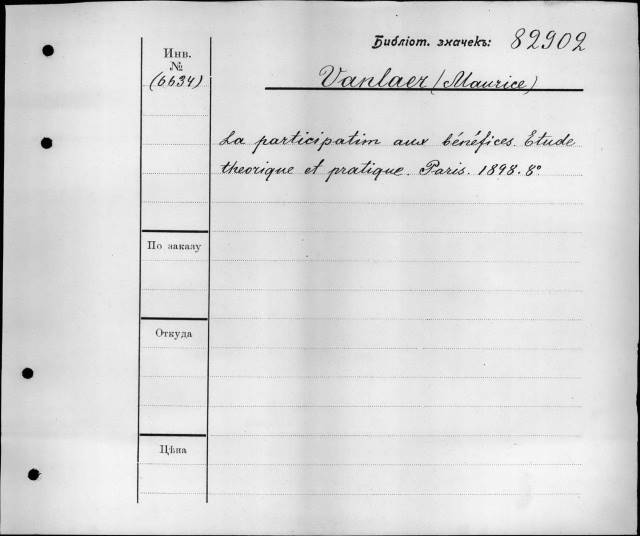 Библіот. значекъ: 82902
Инв.
№
(6634)
Vanlaer (Maurice)
La participation aux bénéfices. Etude
theorique et pratique. Paris. 1898. 8°
По заказу
Откуда
Цѣна